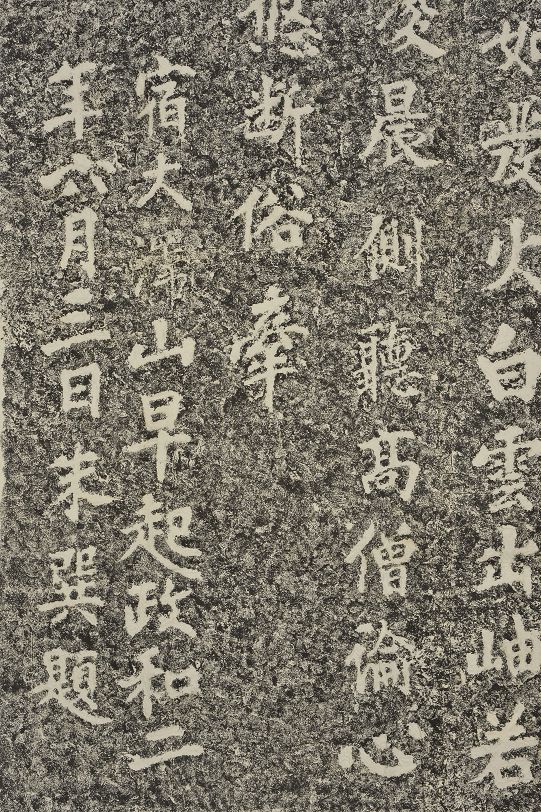 如發火白雲出岫若
凌晨側聽高僧倫心
悠斷俗牽
宿大溈山早起政和二
年六月二日朱巽題